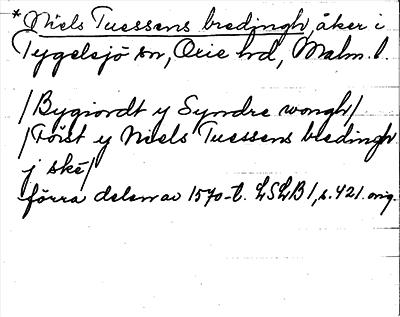 *Niels Tuessens bredingh, åker i
Tygelsjö sn, Oxie hd, Malm. l.
/Bygiordt y Syndre wongh/
/Föist y Niels Tuessens bredingh
j ske/
förra delen av 1570-t. LSLB 1, s. 421. orig.